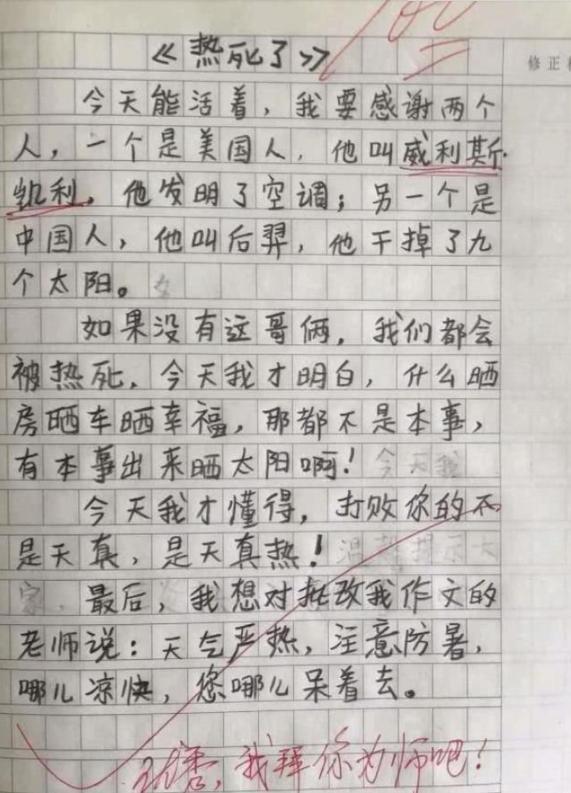 100
修正
《热死了》
今天能活着，我要感谢两个
人，一个是美国人，他叫威利斯·
凯利，他发明了空调；另一个是
中国人，他叫后羿，他干掉了九
个太阳。
如果没有这哥俩，我们都会
被热死，今天我才明白，什么晒
房晒车晒幸福，那都不是本事，
有本事出来晒太阳啊！今天我
今天我才懂得，打败你的不
是天真，是天真热！温馨提示大
家，最后，我想对批改我作文的
老师说：天气严热，注意防暑，
哪儿凉快，您哪儿呆着去。
优秀，我拜你为师吧！